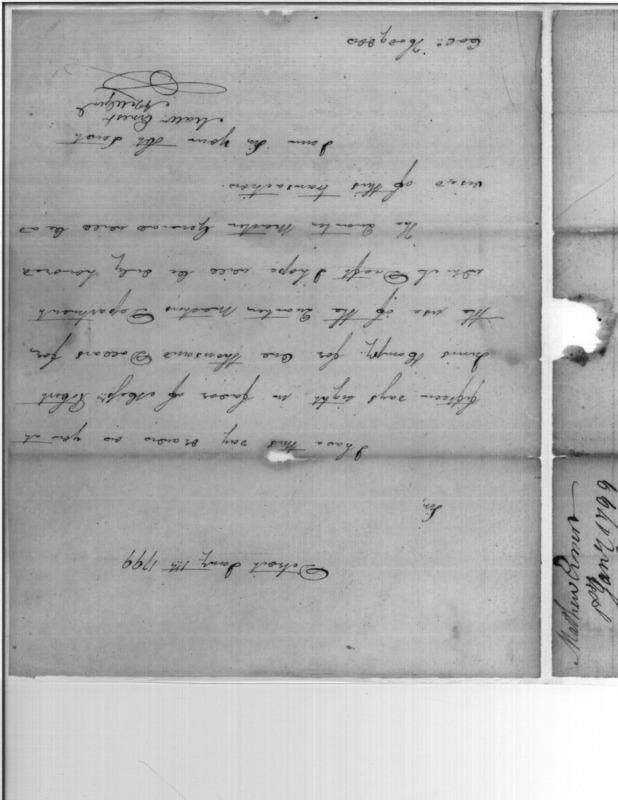 Detroit Jany. 1st 1799
Sir,
I have this day drawn on you at
fifteen days sight in favor of Messrs Robert
Innis & Compy. for One thousand Dollars for
the use of the Quarter Masters Department
which Draft I hope will be duly honored
The Quarter Master General will be
of this transaction.
I am Sir your Obt Servt
Matw Ernest
Colo. Hodgdon
Mathew Ernest
1 Jany 1799